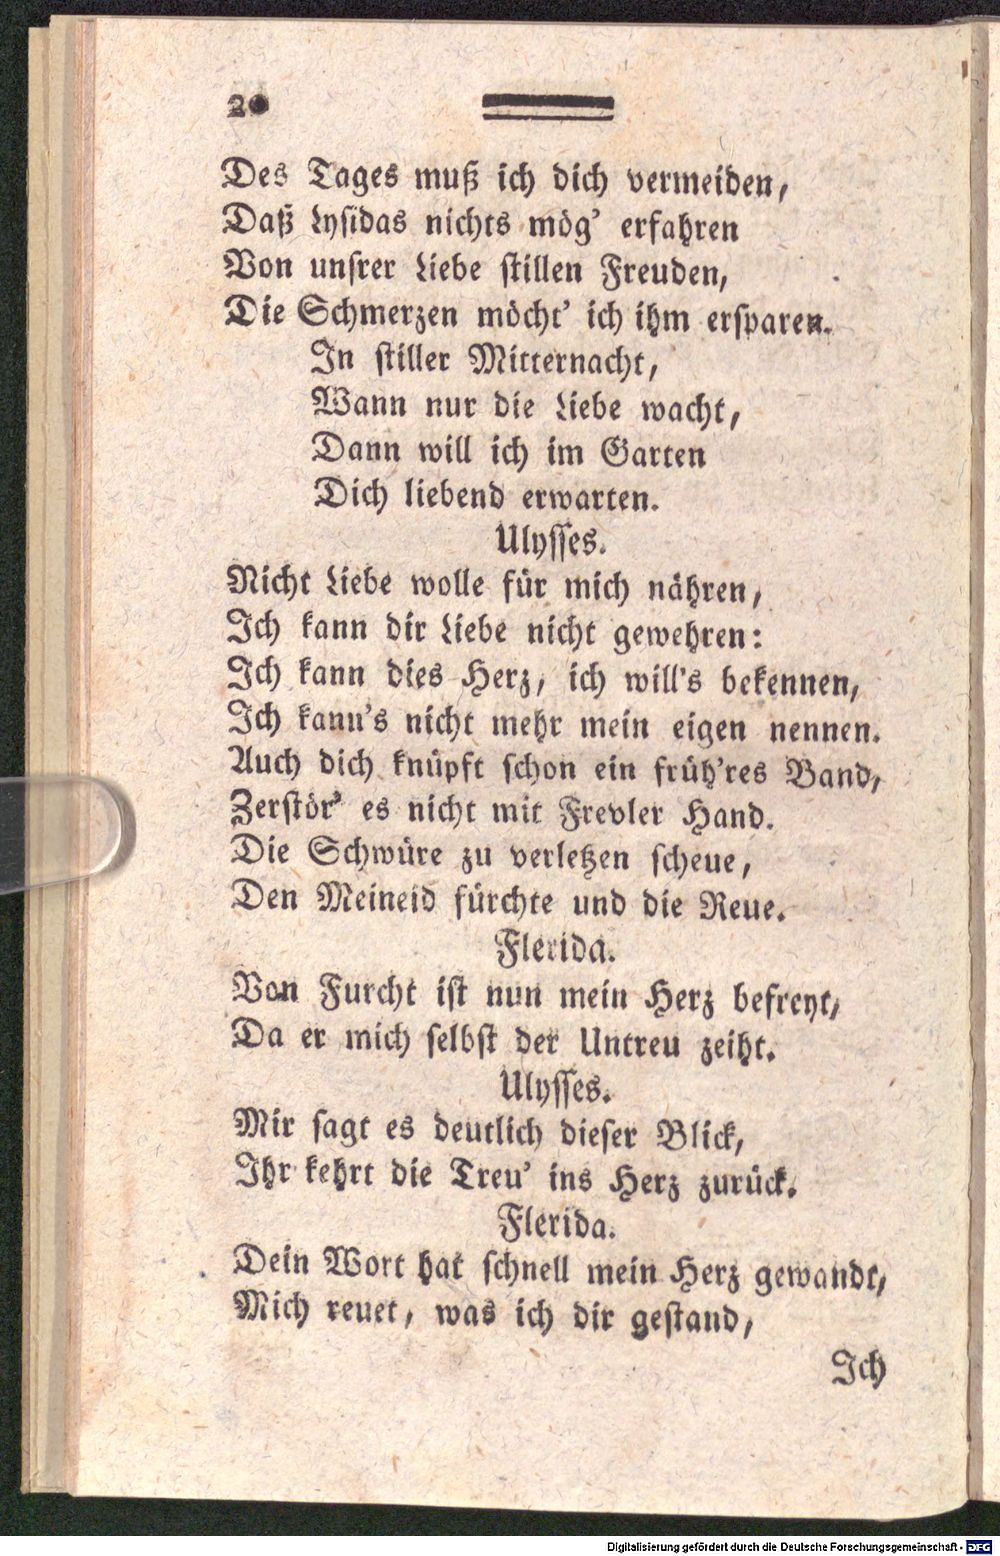 20
Des Tages muß ich dich vermeiden,
Daß Lysidas nichts mög' erfahren
Von unsrer Liebe stillen Freuden,
Die Schmerzen möcht' ich ihm ersparen.
In stiller Mitternacht,
Wann nur die Liebe wacht,
Dann will ich im Garten
Dich liebend erwarten.
Ulysses.
Nicht Liebe wolle für mich nähren,
Ich kann dir Liebe nicht gewehren:
Ich kann dies Herz, ich will's bekennen,
Ich kann's nicht mehr mein eigen nennen.
Auch dich knüpft schon ein früh'res Band,
Zerstör' es nicht mit Frevler Hand.
Die Schwüre zu verletzen scheue,
Den Meineid fürchte und die Reue.
Flerida.
Von Furcht ist nun mein Herz befreyt,
Da er mich selbst der Untreu zeiht.
Ulysses.
Mir sagt es deutlich dieser Blick,
Ihr kehrt die Treu' ins Herz zurück.
Flerida.
Dein Wort hat schnell mein Herz gewandt,
Mich reuet, was ich dir gestand,
Ich
Digitalisierung gefördert durch die Deutsche Forschungsgemeinschaft - DFG